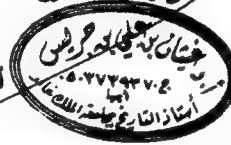 غيثان بن علي بن جريس
ج٠٥٠٣٧٣٩٣٧
أبها
أستاذ التاريخ بجامعة الملك خالد